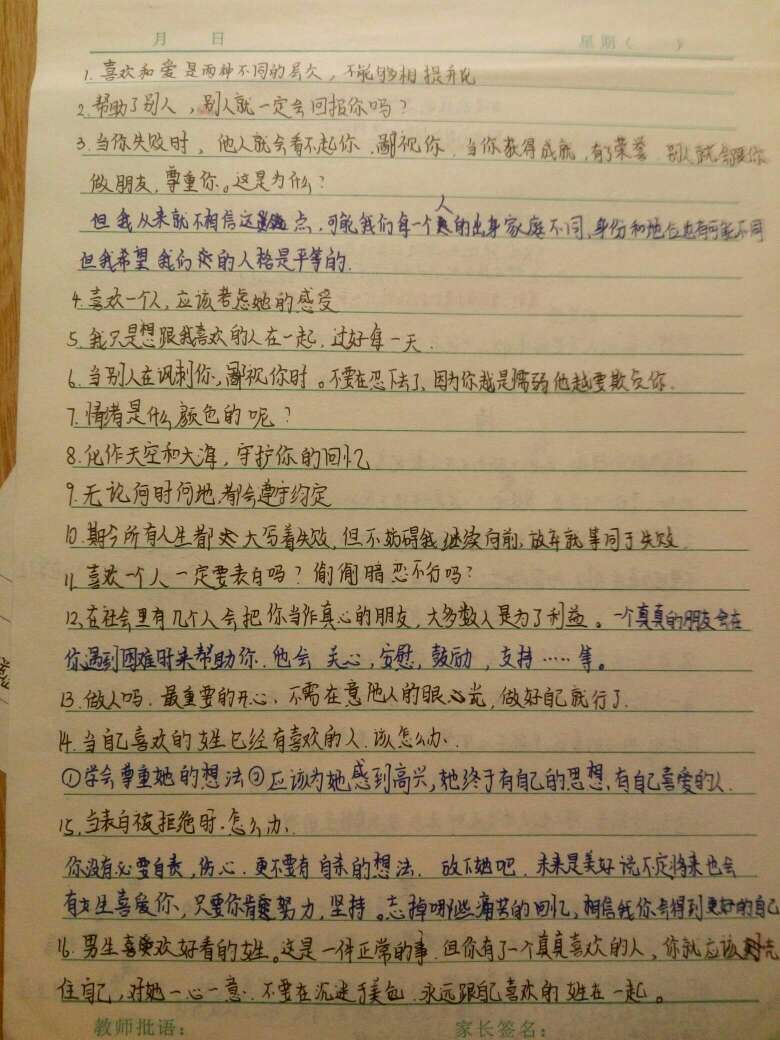 月 日 星期( )
1.喜欢和爱是两种不同的层次,不能够相提并论
2.帮助了别人,别人就一定会回报你吗?
3.当你失败时,他人就会看不起你,鄙视你,当你获得成就,有了荣誉.别人就会跟你
做朋友,尊重你。这是为什么?
但我从来就不相信这点,可能我们每一个人的出身家庭不同,身份和地位也有可能不同
但我希望我们的人格是平等的.
4.喜欢一个人,应该考虑她的感受
5.我只是想跟我喜欢的人在一起,过好每一天.
6.当别人在讽刺你,鄙视你时。不要在忍下去了,因为你越是懦弱他越要欺负你.
7.情绪是什么颜色的呢?
8.化作天空和大海,守护你的回忆
9.无论何时何地,都会遵守约定
10.期今所有人生都大写着失败,但不妨碍我继续向前,放弃就等同于失败.
11.喜欢一个人一定要表白吗?偷偷暗恋不行吗?
12.在社会里有几个人会把你当作真心的朋友,大多数人是为了利益。一个真真的朋友会在
你遇到困难时来帮助你.他会关心,安慰,鼓励,支持……等。
13.做人吗.最重要的开心.不需在意他人的眼光,做好自己就行了.
14.当自己喜欢的女生已经有喜欢的人.该怎么办.
①学会尊重她的想法②应该为她感到高兴,她终于有自己的思想,有自己喜爱的人.
15.当表白被拒绝时.怎么办.
你没有必要自责,伤心.更不要有自杀的想法.放下她吧.未来是美好说不定将来也会
有女生喜爱你,只要你肯努力,坚持。忘掉哪些痛苦的回忆,相信我你会得到更好的自己
16.男生喜欢好看的女生。这是一件正常的事.但你有了一个真真喜欢的人,你就应该
住自己,对她一心一意.不要在沉迷于美色.永远跟自己喜欢的女生在一起。
教师批语: 家长签名: